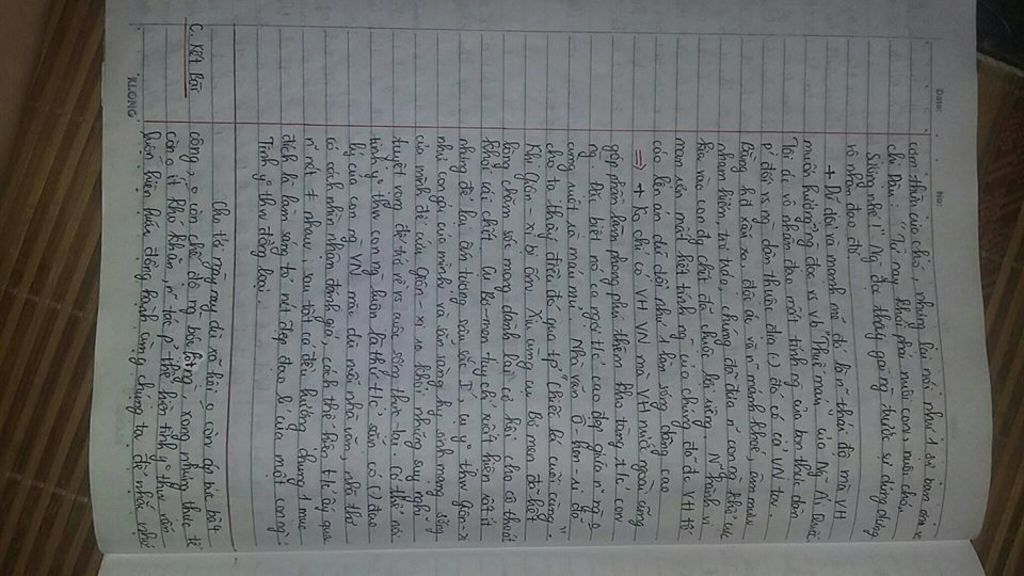 Date: No:
cảm thức của chó, nhưng lại nói như 1 sự ban ơn vs
chị Dậu: "Từ nay khỏi phải nuôi con, nuôi chó,
sướng nhé!" Ng đọc thấy gai ng trước sự dửng dưng
vô nhân đạo đó
+ Dữ dội và mạnh mẽ đó là n~ thái độ mà VH
muốn hướng ng đọc vs vb "Thuế máu" của Ng~ Ái Quốc
Tội ác vô nhân đạo mất tính ng của bọn thực dân
P đối vs ng dân thuộc địa () đó có cả VN ta.
Bằng sâu xa, độc ác và n~ mánh khoé, âm mưu
nham hiểm, trá, chúng đã đưa n~ con ng khỏi
vào con đg chết dù chưa lìa sống. N~ hành vi
man rợn mất hết tính ng của chúng đã đc VH tố
cáo lên án dữ dội như 1 làn sóng dâng cao
=> + Ko chỉ có VH VN mà VH nước ngoài cũng
góp phần làm phong phú thêm kho tàng t/c con
ng. Đặc biệt nó ca ngợi t/c cao đẹp giữa n~ ng o
cùng ruột rà máu mủ. Nhà văn O Hen-ri đã
cho ta thấy điều đó qua tp "Chiếc lá cuối cùng".
Khi Giôn-xi bị ốm, Xiu cùng cụ Bơ men đã hết
lòng chăm sóc mong dành lấy cơ hội cho cô thoát
khỏi cái chết. Cụ Bơ-men tuy chỉ xuất hiện rất ít
nhưng để lại ấn tượng sâu sắc I, cụ yº thw Giôn-xi
như con gái của mình và sẵn sàng hy sinh mạng sống
của mình để cứu Giôn-xi ra khỏi những suy nghĩ
tuyệt vọng để trở về vs cuộc sống thực tại. Có thể nói
tình yº thw con ng luôn là thứ t/c sẵn có () đạo
lý của con ng VN mặc dù mỗi nhà văn, nhà thơ
có cách nhìn nhận đánh giá, cách thể hiện t/c ấy qua
n~ nét ≠ nhau, sau tất cả đều hướng chung 1 mục
đích là làm sáng tỏ nét đẹp đạo lí của mỗi con ng:
Tình yº thw đồng loại.
Cho tới ngày nay dù xã hội o còn áp bức bất
C. Kết Bài công, o còn chế độ ng bóc lột ng, xong những thực tế
còn o ít khó khăn, n~ tác p~ thể hiện tình yº thw vẫn
luôn hiện hữu, đồng hành cùng chúng ta để nhắc nhở
KLONG